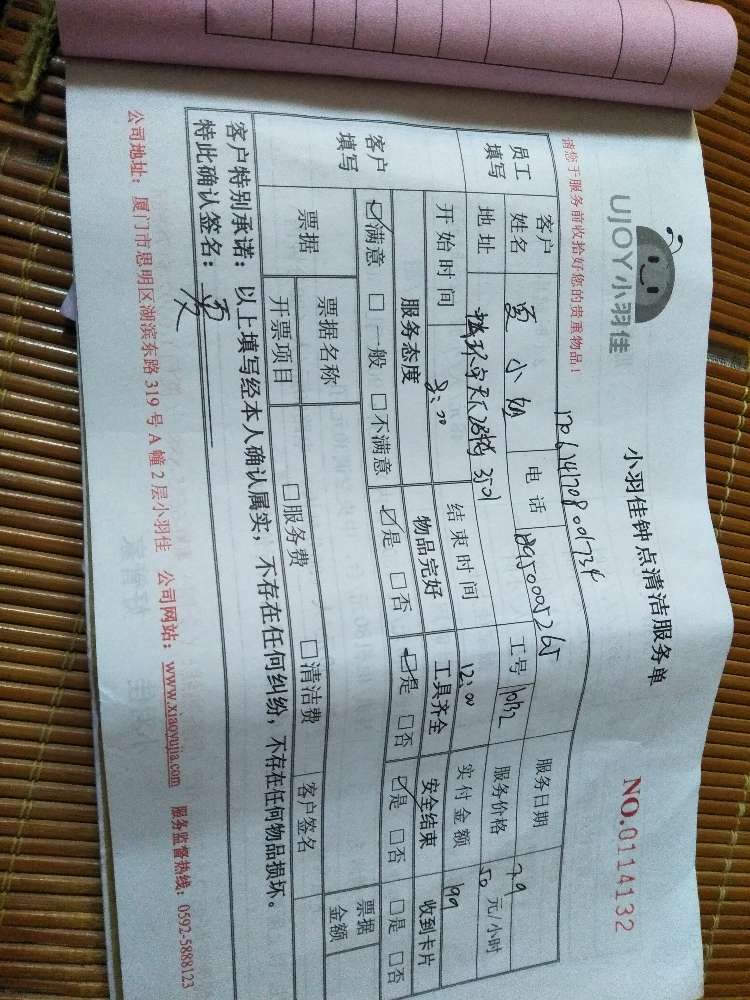 UJOY小羽佳
小羽佳钟点清洁服务单
NO.0114132
请您于服务前收拾好您的贵重物品！
员工填写 客户姓名 小姐 电话 18950005265 工号 1032 服务日期 7.9
地址 3501 服务价格 50 元/小时
客户填写 开始时间 8:00 结束时间 12:00 实付金额 199
服务态度 物品完好 工具齐全 安全结束 收到卡片
☑满意 □一般 □不满意 ☑是 □否 ☑是 □否 ☑是 □否 □是 □否
票据 票据名称 客户签名 票据金额
开票项目 □服务费 □清洁费
客户特别承诺：以上填写经本人确认属实，不存在任何纠纷，不存在任何物品损坏。
特此确认签名：
公司地址：厦门市思明区湖滨东路 319 号 A 幢 2 层小羽佳 公司网站：www.xiaoyujia.com 服务监督热线：0592-5888123